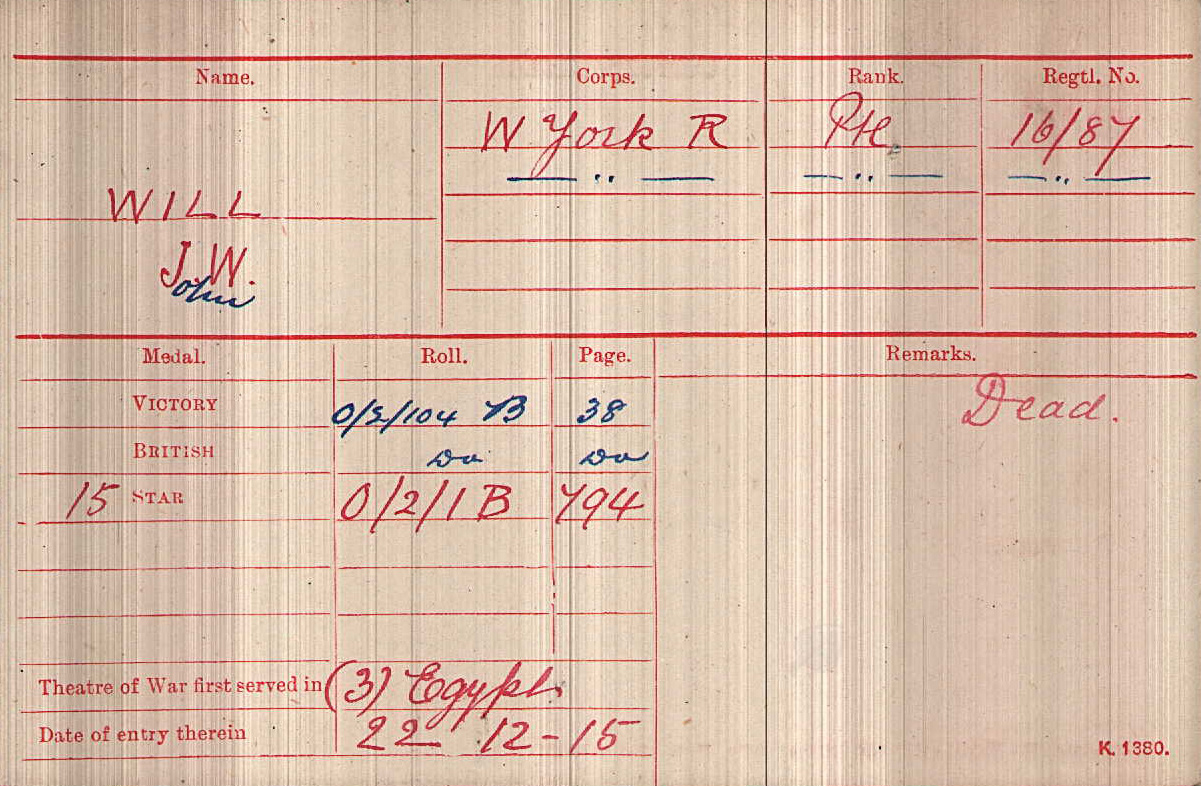 Name. Corps. Rank. Regtl. No.
W York R Pte 16/87
— " — — " — — " —
WILL
J. W.
John
Medal. Roll. Page. Remarks.
VICTORY 0/2/104 B 38 Dead.
BRITISH Do Do
15 STAR 0/2/1 B 794
Theatre of War first served in (3) Egypt.
Date of entry therein 22 12-15
K. 1380.